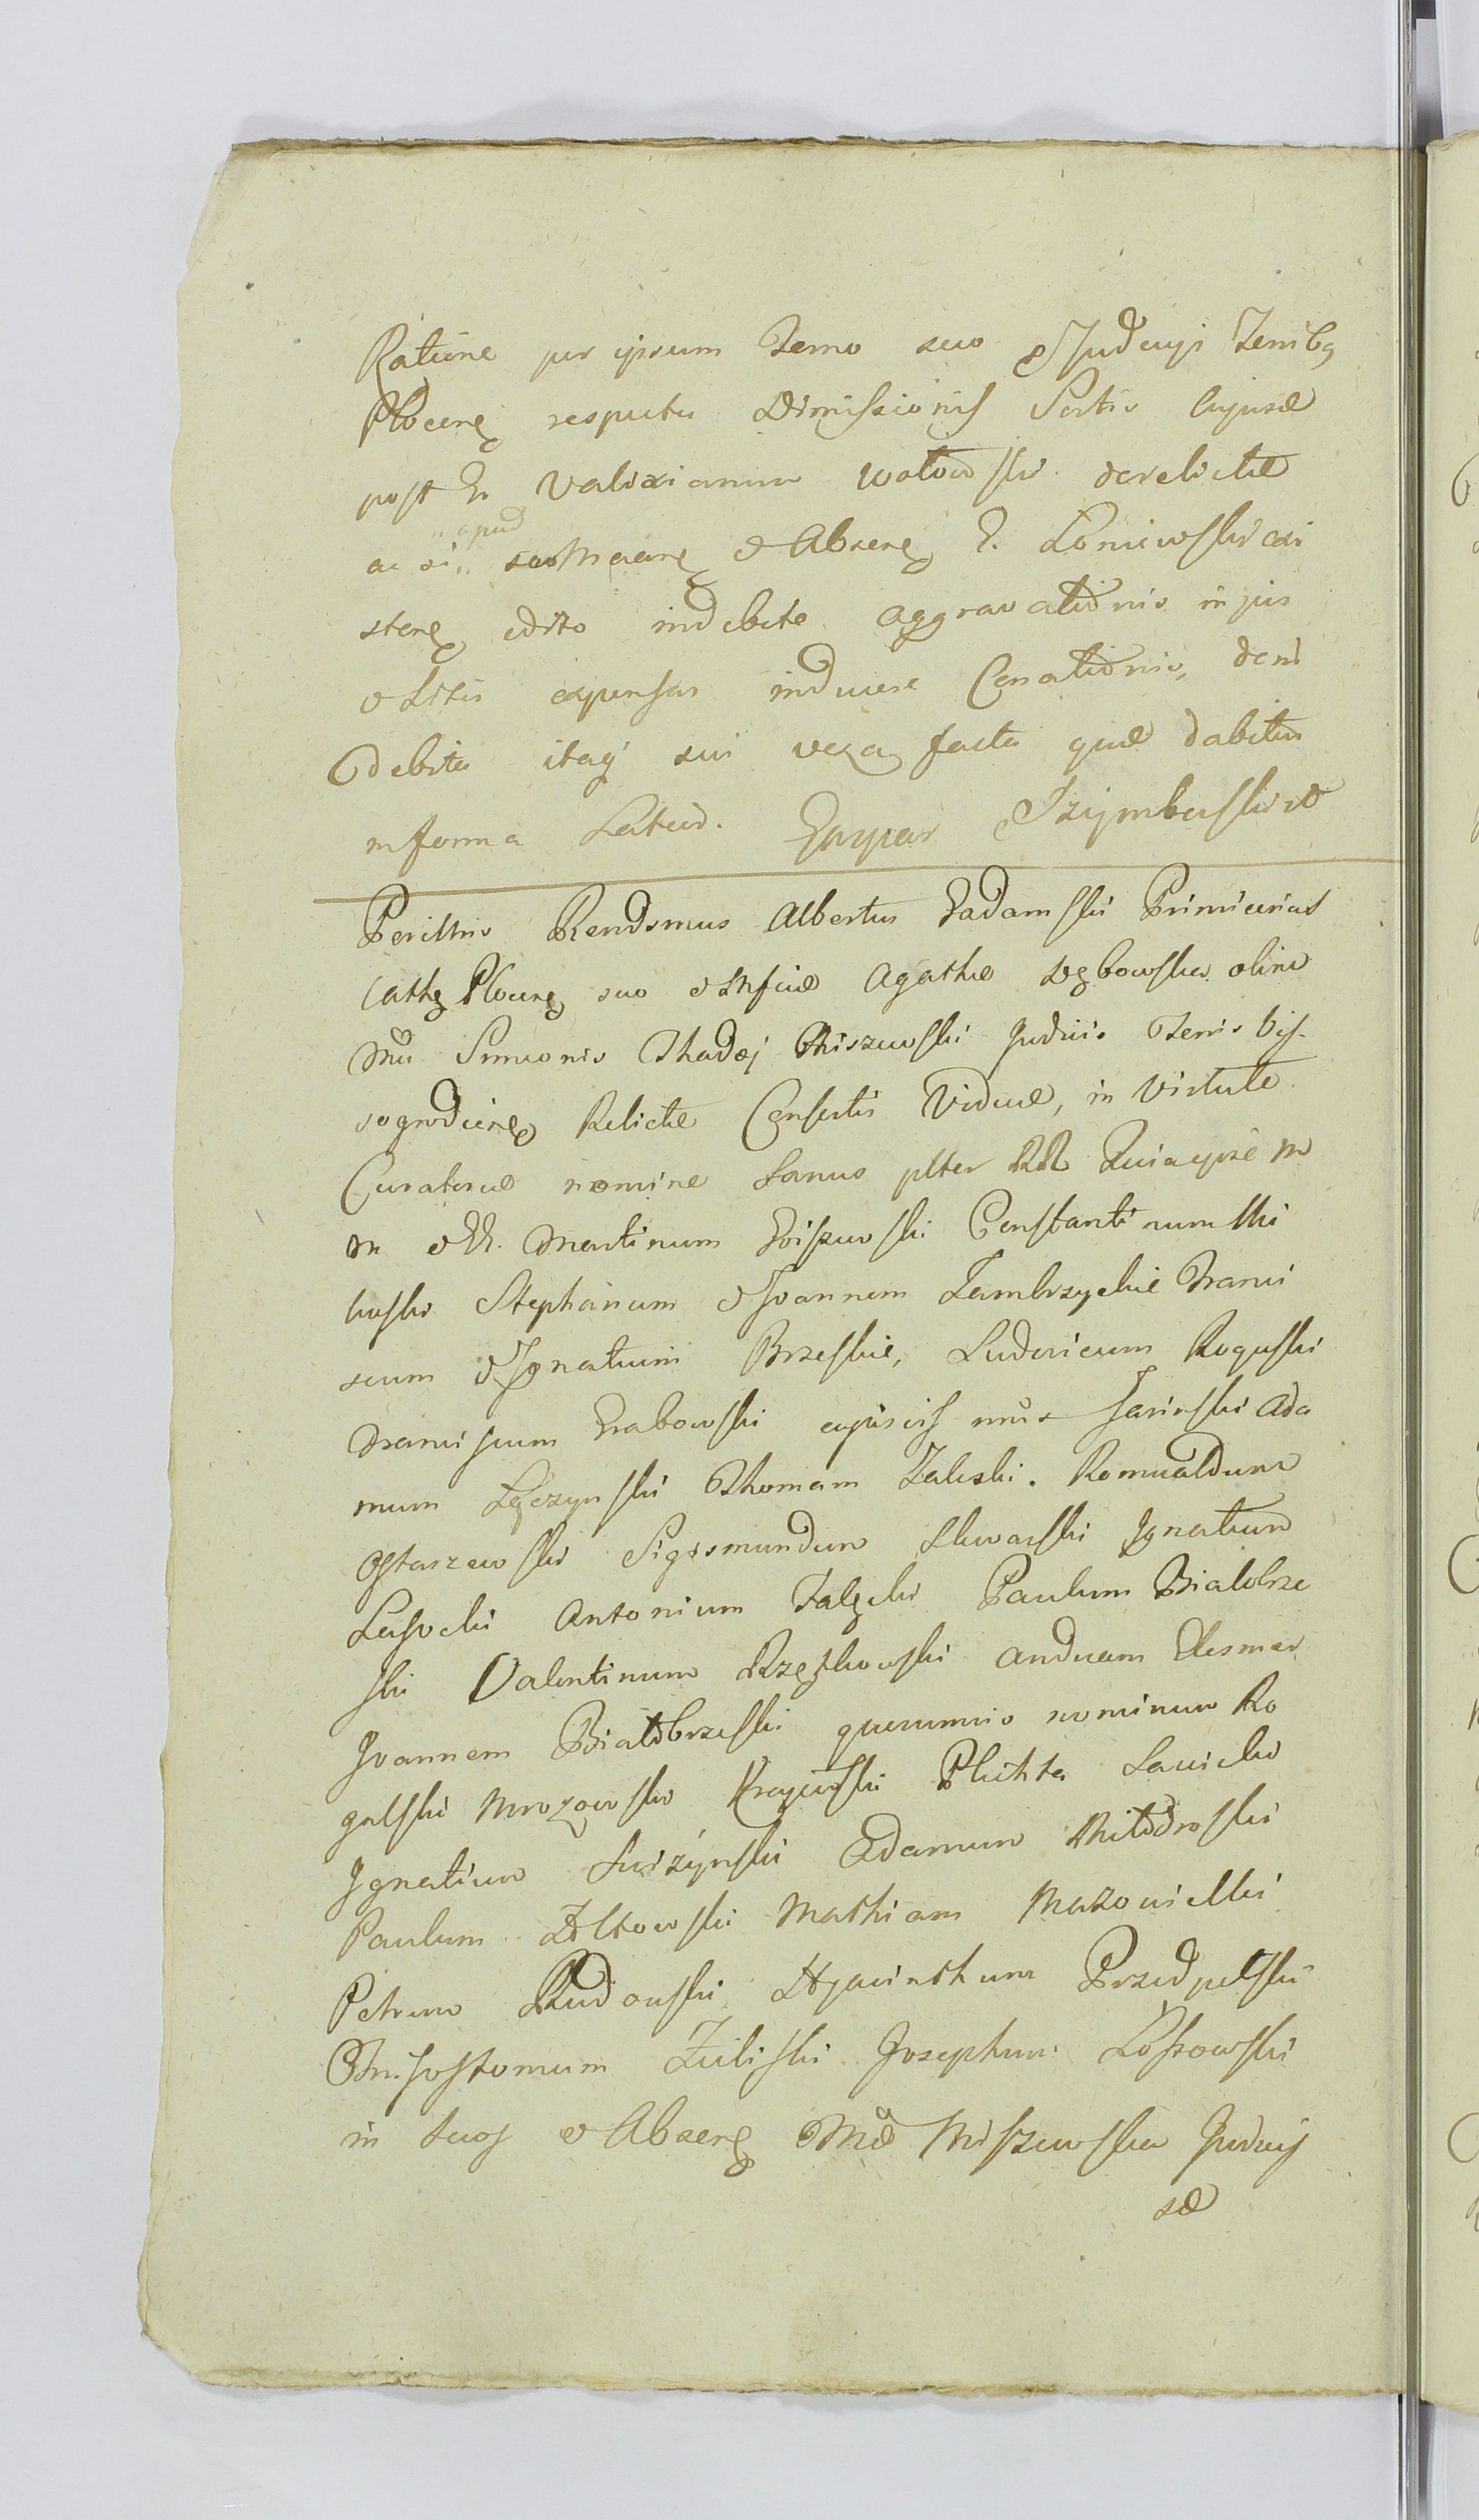 Ratione per ipsum Terno suo Judicijs Tenibq
Plocen respectu Dimissionis Sortis Cujusd
post G. Valerianum Wołowski derelictæ
apud
ac si se Manen & Absen G. Łoniewski exi
sten edito indebite aggravationis in jus
& Litis expensas inducere Conationis, dem
debita itaq sui vera facta quæ dabitur
in forma Latius. Gaspar Trzymbuski
Perillris Rendsmus Albertus Gadamski Primicerius
Cath Plocen suo & Mficæ Agathæ Dębowska olim
Mci Simonis Thadej Miszewski Judicis Terris Vis
sogrodien Relictæ Consortis Viduæ, in Virtute
Curatoriæ nomine Sanus plter RR Quia ipse in
m & G. Martinum Goiszewski Constantinum Mi
kuski Stephanum & Joannem Zambrzyckie Franci
scum & Ignatium Brzeskie, Ludovicum Roguski
Franciscum Grabowski cujusvis mus Jasinski Ada
mum Łączynski Thomam Zaleski. Romualdum
Ostaszewski Sigismundum Skwarski Ignatium
Lasocki Antonium Falęcki Paulum Białobrze
ski Valentinum Rzeszkowski Andream
Joannem Białobrzeski quorumvis nominum Ro
galski Mrozowski Krajewski Plichta Sawicki
Ignatium Swiżynski Adamum Mitodroski
Paulum Żółtowski Mathiam Mazowiecki
Petrum Rudowski Hyacinthum Przedpełski
Chrisostomum Zieliski Josephum Lossowski
in suos & Absen Mcæ Miszewska Judicis
sæ